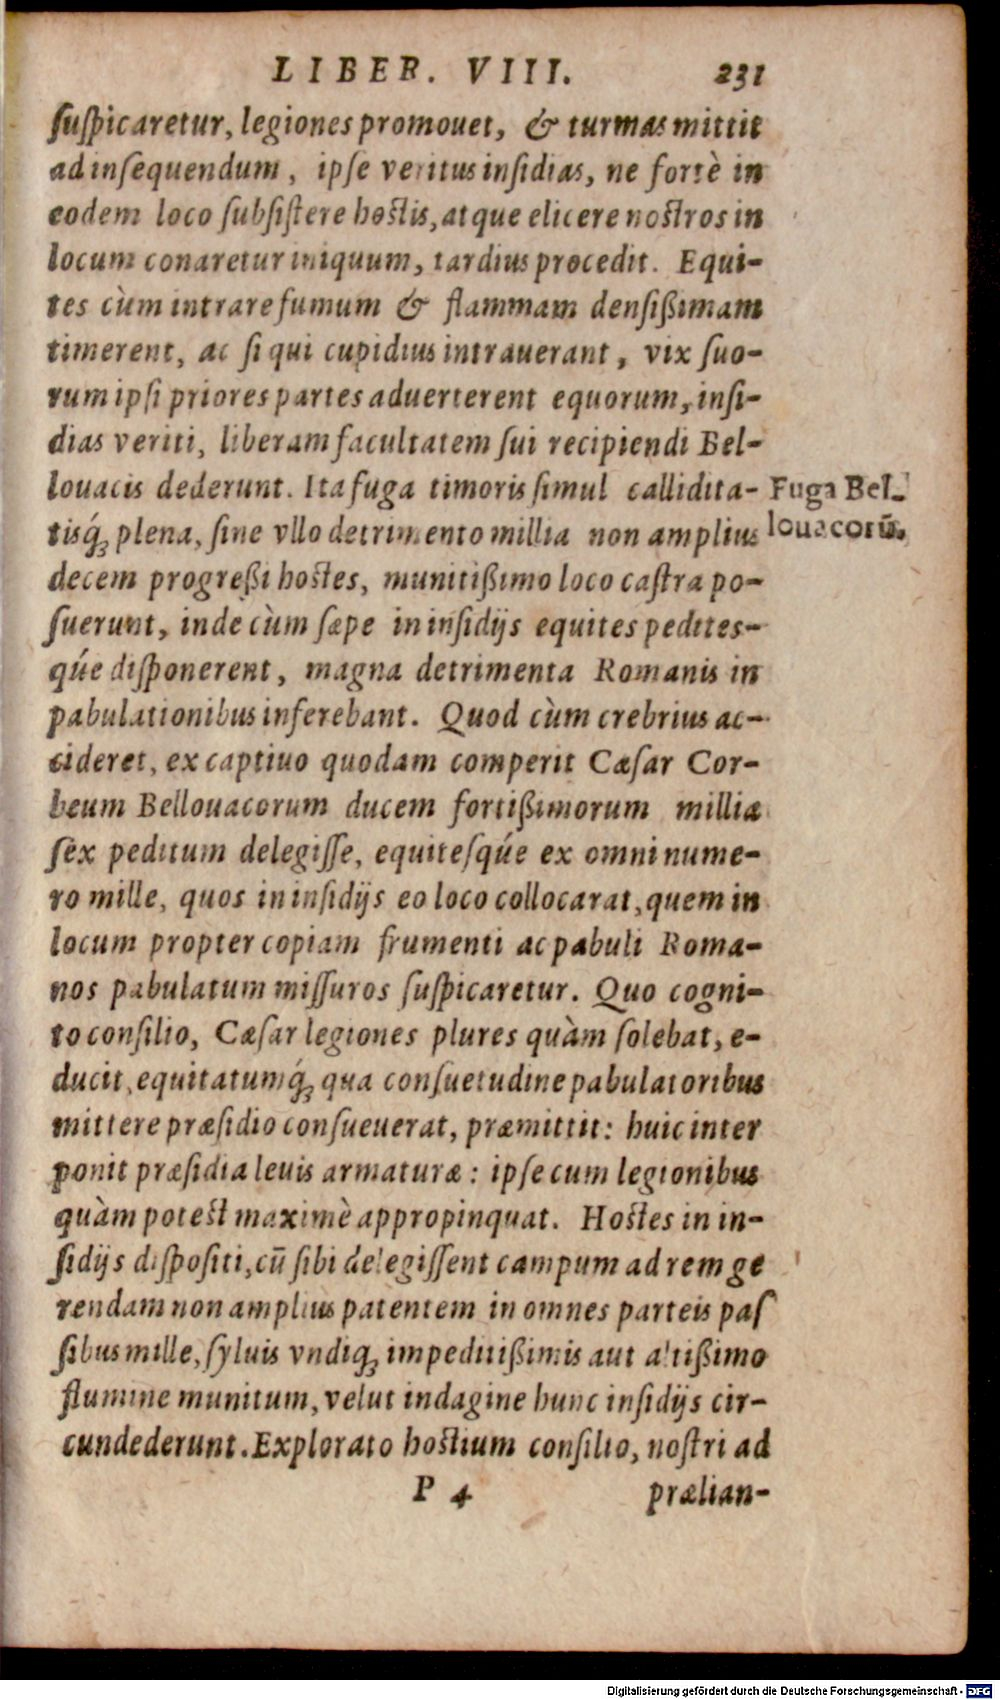 LIBER. VIII. 231
ſuſpicaretur, legiones promouet, & turmas mittit
ad inſequendum, ipſe veritus inſidias, ne fortè in
eodem loco ſubſiſtere hoſtis, atque elicere noſtros in
locum conaretur iniquum, tardius procedit. Equi-
tes cùm intrare fumum & flammam denſißimam
timerent, ac ſi qui cupidius intrauerant, vix ſuo-
rum ipſi priores partes aduerterent equorum, inſi-
dias veriti, liberam facultatem ſui recipiendi Bel-
louacis dederunt. Ita fuga timoris ſimul callidita-
Fuga Bel-
tisq́ꝫ plena, ſine vllo detrimento millia non amplius
louacorū.
decem progreßi hoſtes, munitißimo loco caſtra po-
ſuerunt, inde cùm ſæpe in inſidijs equites pedites-
qúe diſponerent, magna detrimenta Romanis in
pabulationibus inferebant. Quod cùm crebrius ac-
cideret, ex captiuo quodam comperit Cæſar Cor-
beum Bellouacorum ducem fortißimorum millia
ſex peditum delegiſſe, equiteſqúe ex omni nume-
ro mille, quos in inſidijs eo loco collocarat, quem in
locum propter copiam frumenti ac pabuli Roma-
nos pabulatum miſſuros ſuſpicaretur. Quo cogni-
to conſilio, Cæſar legiones plures quàm ſolebat, e-
ducit, equitatumq́ꝫ qua conſuetudine pabulatoribus
mittere præſidio conſueuerat, præmittit: huic inter
ponit præſidia leuis armaturæ: ipſe cum legionibus
quàm poteſt maximè appropinquat. Hoſtes in in-
ſidijs diſpoſiti, cū ſibi delegiſſent campum ad rem ge
rendam non amplius patentem in omnes parteis paſ
ſibus mille, ſyluis vndiqꝫ impeditißimis aut altißimo
flumine munitum, velut indagine hunc inſidijs cir-
cundederunt. Explorato hoſtium conſilio, noſtri ad
P 4 prælian-
Digitalisierung gefördert durch die Deutsche Forschungsgemeinschaft - DFG